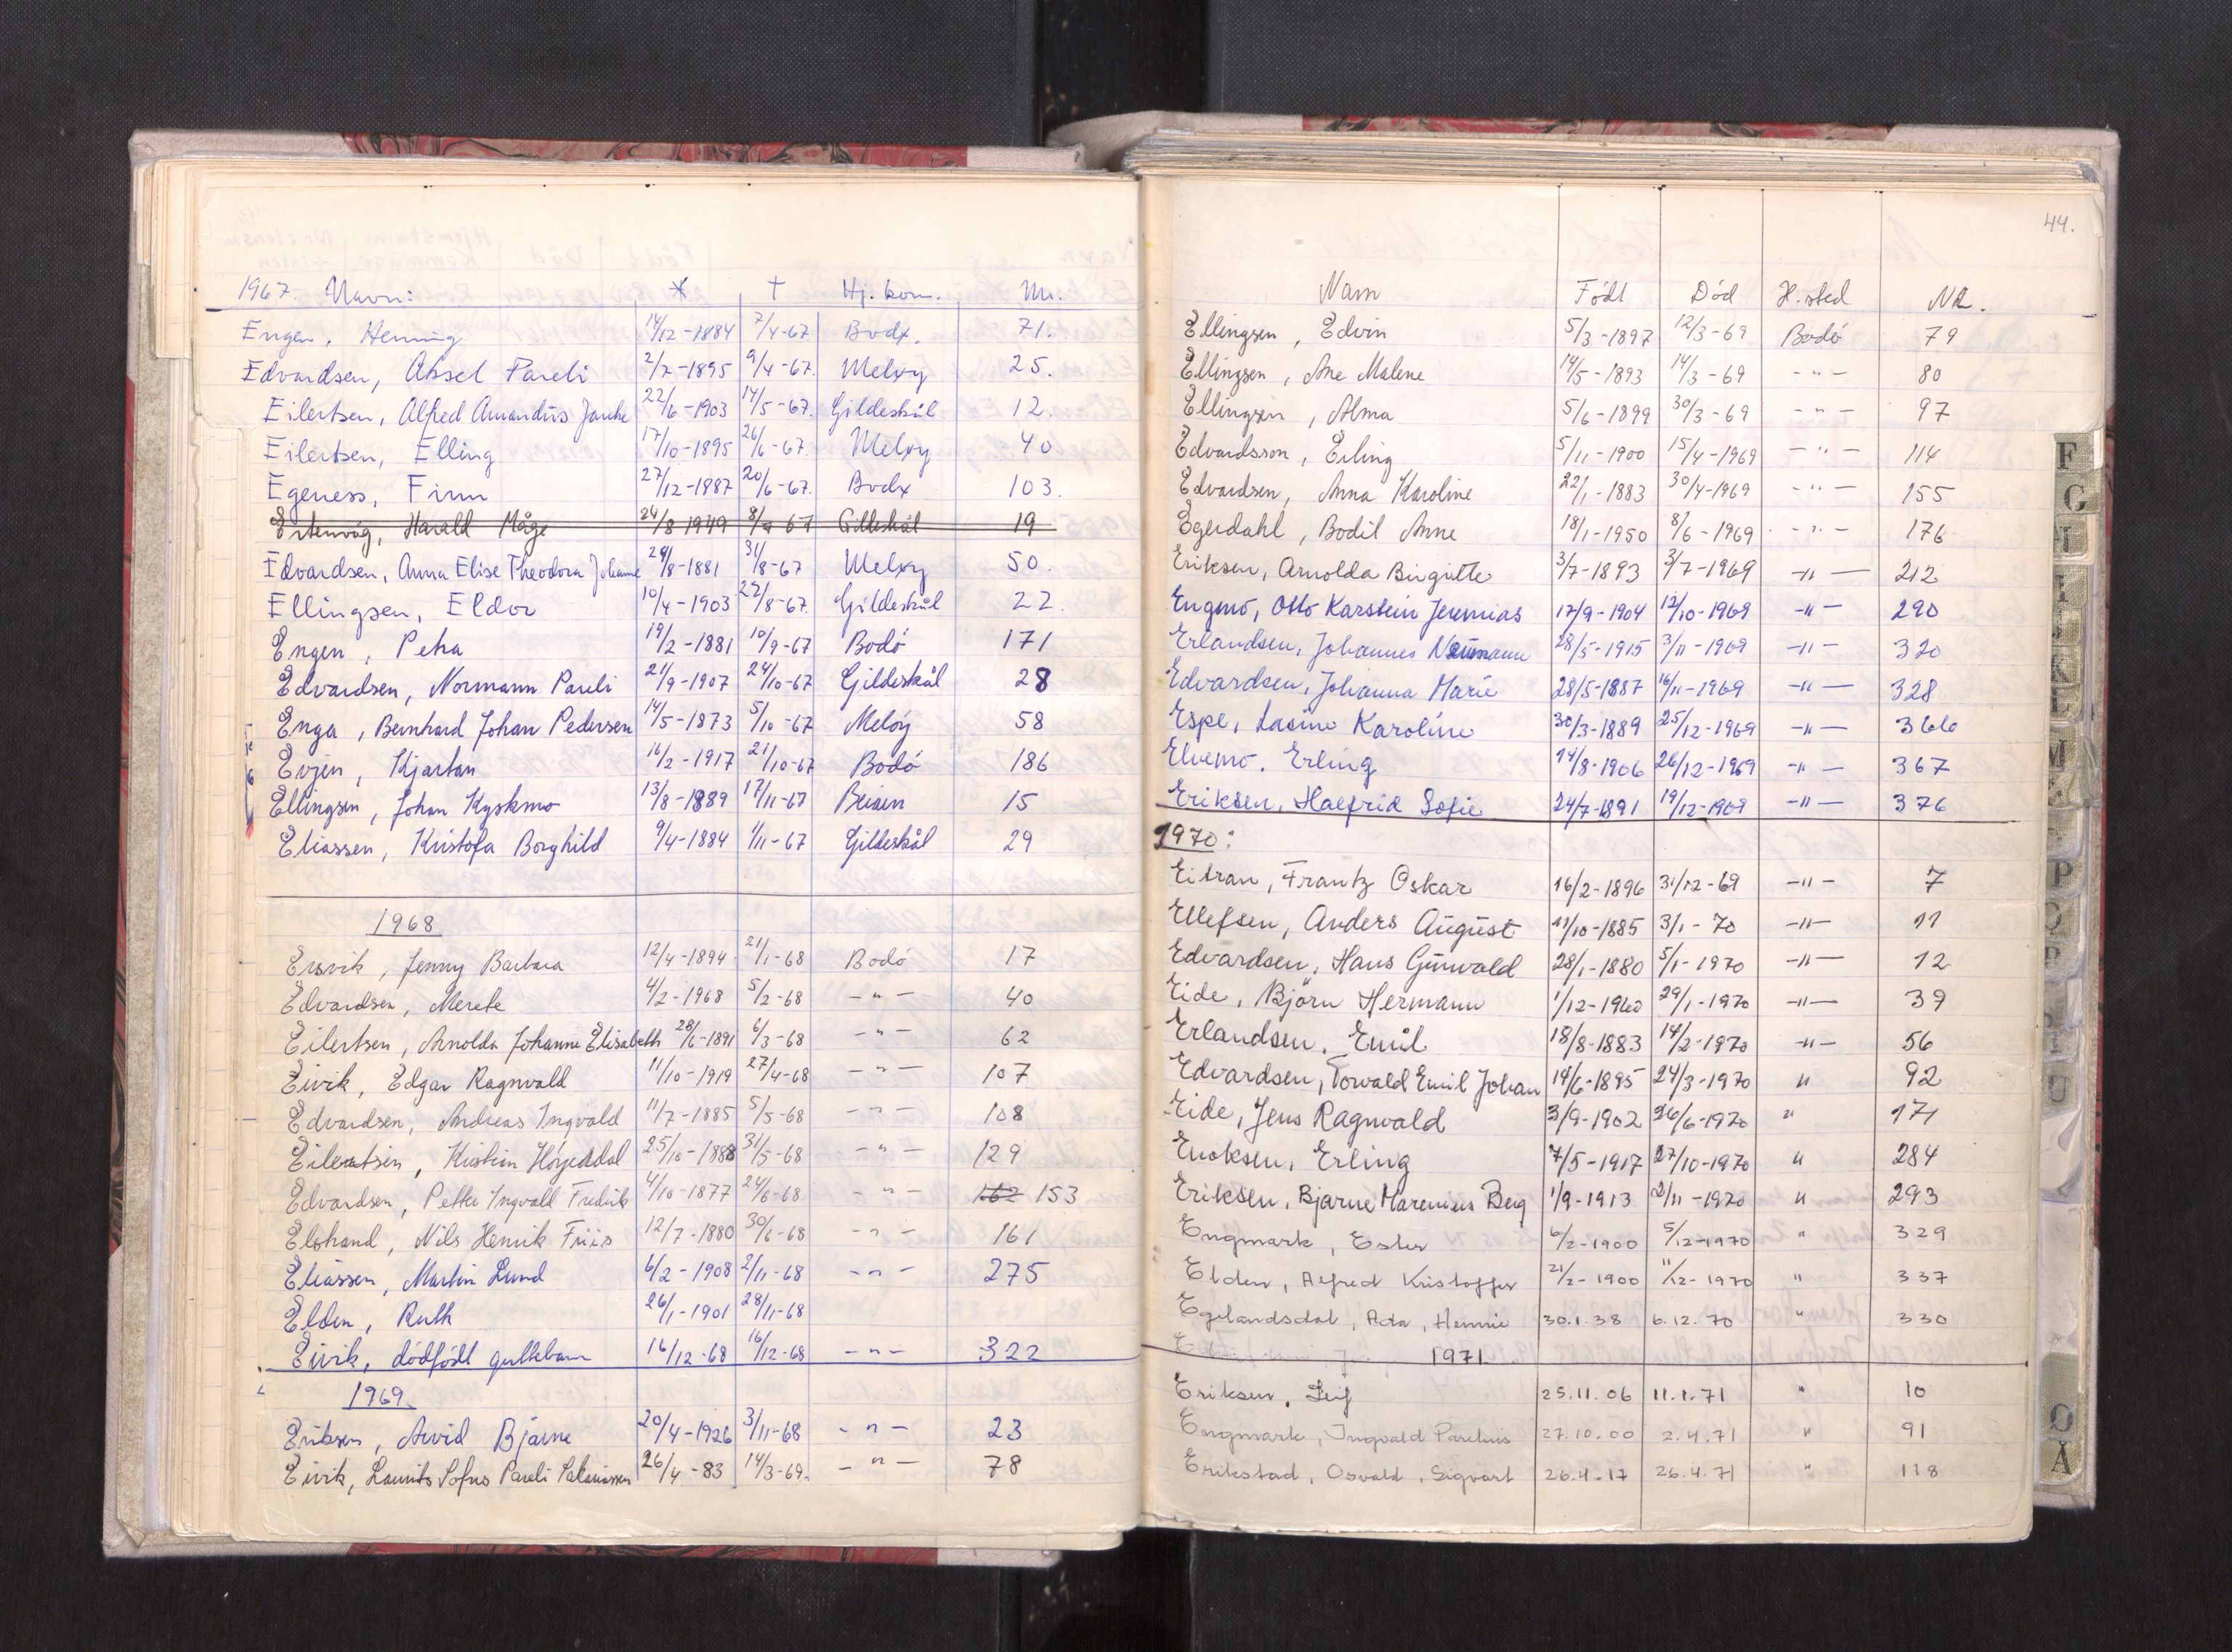 1967. Navn: * † Hj. kom. Nr.
Engen, Henning 14/12-1884 7/4-67 Bodø. 71.
Edvardsen, Aksel Pareli 2/7-1895 9/4-67. Meløy 25.
Eilertsen, Alfred Amandus Janke 22/6-1903 14/5-67. Gildeskål 12.
Eilertsen, Elling 17/10-1895 26/6-67. Meløy 40
Egeness, Finn 27/12-1887 20/6-67. Bodø 103.
Ertenvåg, Harald Måge 24/8-1949 8/7-67 Gildeskål 19
Edvardsen, Anna Elise Theodora Johanne 24/8-1881 31/8-67 Meløy 50.
Ellingsen, Eldor 10/4-1903 22/8-67. Gildeskål 22.
Engen, Petra 19/2-1881 10/9-67 Bodö 171
Edvardsen, Normann Pareli 21/9-1907 24/10-67 Gildeskål 28
Enga, Bernhard Johan Pedersen 14/5-1873 5/10-67 Melöy 58
Evjen, Kjartan 16/2-1917 21/10-67 Bodö 186
Ellingsen, Johan Kyskmo 13/8-1889 17/11-67 Beiarn 15
Eliassen, Kristofa Borghild 9/4-1884 1/11-67 Gildeskål 29
1968
Ersvik, Jenny Barbara 12/4-1894 21/1-68 Bodö 17
Edvardsen, Merete 4/2-1968 5/2-68 -"- 40
Eilertsen, Arnolda Johanne Elisabeth 28/6-1891 6/3-68 -"- 62
Eivik, Edgar Ragnvald 11/10-1919 27/4-68 -"- 107
Edvardsen, Andreas Ingvald 11/7-1885 5/5-68 -"- 108
Eilertsen, Kristian Höyerdal 25/10-1888 31/5-68 -"- 129
Edvardsen, Petter Ingvald Fredrik 4/10-1877 24/6-68 -"- 162 153
Elstrand, Nils Henrik Friis 12/7-1880 30/6-68 -"- 161
Eliassen, Martin Lund 6/2-1908 2/11-68 -"- 275
Elden, Ruth 26/1-1901 28/11-68
Eivik, dödfödt guttebarn 16/12-68 16/12-68 -"- 322
1969
Eriksen, Arvid Bjarne 20/4-1926 3/11-68 -"- 23
Eivik, Laurits Sofus Pareli Salamonsen 26/4-83 14/3-69. -"- 78
44.
Navn Födt Död H.sted NR.
Ellingsen, Edvin 5/3-1897 12/3-69 Bodö 79
Ellingsen, Ane Malene 14/5-1893 14/3-69 -"- 80
Ellingsen, Alma 5/6-1899 30/3-69 -"- 97
Edvardsson, Erling 5/11-1900 15/4-1969 -"- 114
Edvardsen, Anna Karoline 22/1-1883 30/4-1969 -"- 155
Egerdahl, Bodil Anne 18/1-1950 8/6-1969 -"- 176
Eriksen, Arnolda Birgitte 3/7-1893 3/7-1969 -"- 212
Engmo, Otto Karstein Jeremias 17/9-1904 12/10-1969 -"- 290
Erlandsen, Johannes Neumann 28/5-1915 3/11-1969 -"- 320
Edvardsen, Johanna Marie 28/5-1887 16/11-1969 -"- 328
Espe, Lasine Karoline 30/3-1889 25/12-1969 -"- 366
Elvemo. Erling 14/8-1906 26/12-1969 -"- 367
Eriksen, Halfrid Sofie 24/7-1891 19/12-1969 -"- 376
1970:
Eitran, Frantz Oskar 16/2-1896 31/12-69 -"- 7
Ellefsen, Anders August 11/10-1885 3/1-70 -"- 11
Edvardsen, Hans Gunvald 28/1-1880 5/1-1970 -"- 12
Eide, Björn Hermann 1/12-1960 29/1-1970 -"- 39
Erlandsen, Emil 18/8-1883 14/2-1970 -"- 56
Edvardsen, Torvald Emil Johan 14/6-1895 24/3-1970 " 92
Eide, Jens Ragnvald 3/9-1902 26/6-1970 " 171
Enoksen, Erling 7/5-1917 27/10-1970 " 284
Eriksen, Bjarne Marenius Berg 1/9-1913 2/11-1970 " 293
Engmark, Ester 6/2-1900 5/12-1970 " 329
Elden, Alfred Kristoffer 21/2-1900 11/12-1970 " 337
Egelandsdal, Ada, Hennie 30.1.38 6.12.70 " 330
1971
Eriksen, Leif 25.11.06 11.1.71 " 10
Engmark, Ingvald Parelius 27.10.00 2.4.71 " 91
Erikstad, Osvald, Sigvart 26.4.17 26.4.71 " 118
F
G
H
I
J
K
L
M
P
U
Ø
Å